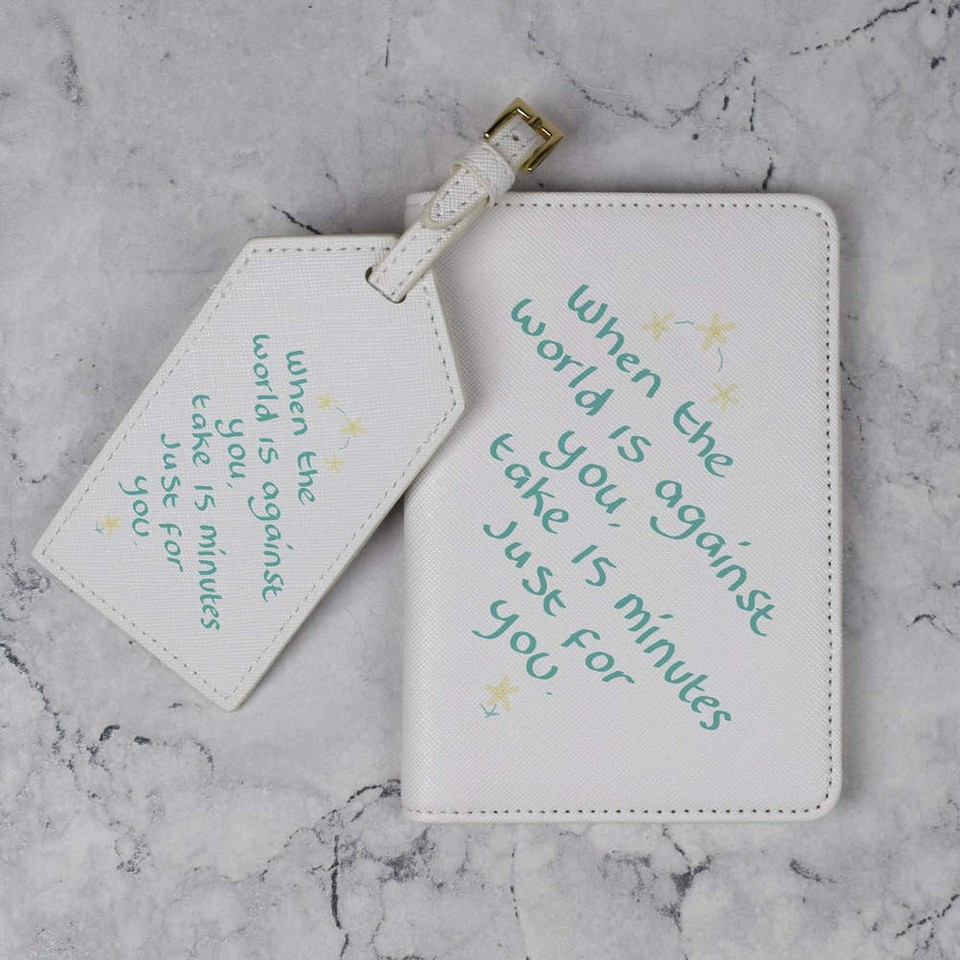 When the
world is against
you,
take 15 minutes
Just for
you.
When the
world is against
you,
take 15 minutes
Just for
you.